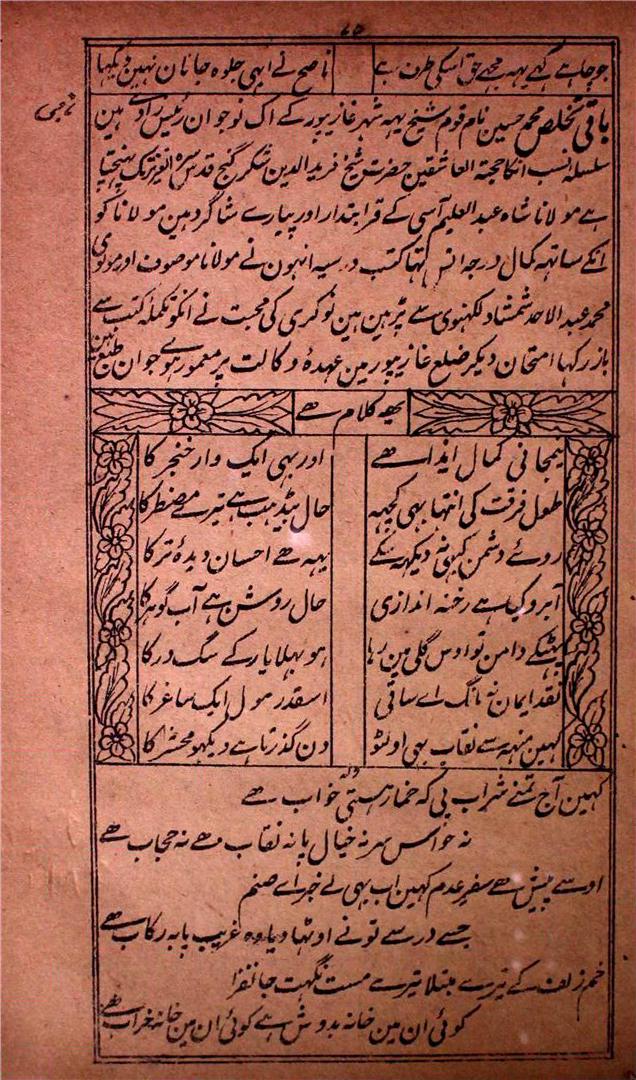 جو چاہے کہے یہہ مجھے حق اسکی طرف ہے
ناصح نے ابہی جلوہ جانان نہین دیکہا
باقی تخلص محمد حسین نام قوم شیخ یہہ شہر غازیپور کے اک نوجوان رئیس زادے ہین
سلسلہ نسب انکا حجتہ العاشقین حضرت شیخ فرید الدین شکر گنج قدس سرہ العزیز تک پہنچتا
ہے مولانا شاہ عبد العلیم آسی کے قرابتدار اور پیارے شاگرد ہین مولانا کو
انکے ساتہہ کمال درجہ انس تہا کتب درسیہ انہون نے مولانا موصوف اور مولوی
محمد عبد الاحد شمشاد لکہنوی سے پڑہین ہین نوکری کی محبت نے انکو تکملۂ کتب سے
باز رکہا امتحان دیکر ضلع غازیپور مین عہدۂ وکالت پر معمور ہوے جوان طبع ہین
یہہ کلام ہے
نیمجانی کمال ایذا ہے
اور بہی ایک وار خنجر کا
طول فرقت کی انتہا بہی کچہہ
حال بیڈہب ہے تیرے مضطر کا
روئے دشمن کبہی نہ دیکہہ سکے
یہہ ہے احسان دیدۂ تر کا
آبرو کیا ہے رخنہ اندازی
حال روشن ہے آب گوہر کا
کے دامن تو اوس گلی مین رہا
ہو بہلا یار کے سگ در کا
نقد ایمان نہ مانگ اے ساقی
اسقدر مول ایک ساغر کا
کہین منہہ سے نقاب بہی اولٹو
دن گذرتا ہے دیکہو محشر کا
ولہ
کہین آج تمنے شراب پی کہ خمار ہستی خواب ہے
نہ حواس سر نہ خیال پا نہ نقاب ہے نہ حجاب ہے
اوسے پیش ہے سفر عدم کہین اب بہی لے خبر اے صنم
جسے در سے تونے اوٹہا دیا وہ غریب پا بہ رکاب ہے
خم زلف کے تیرے مبتلا تیرے مست نگہت جانفزا
کوئی ان مین خانہ بدوش ہے کوئی ان مین خانہ خراب ہے